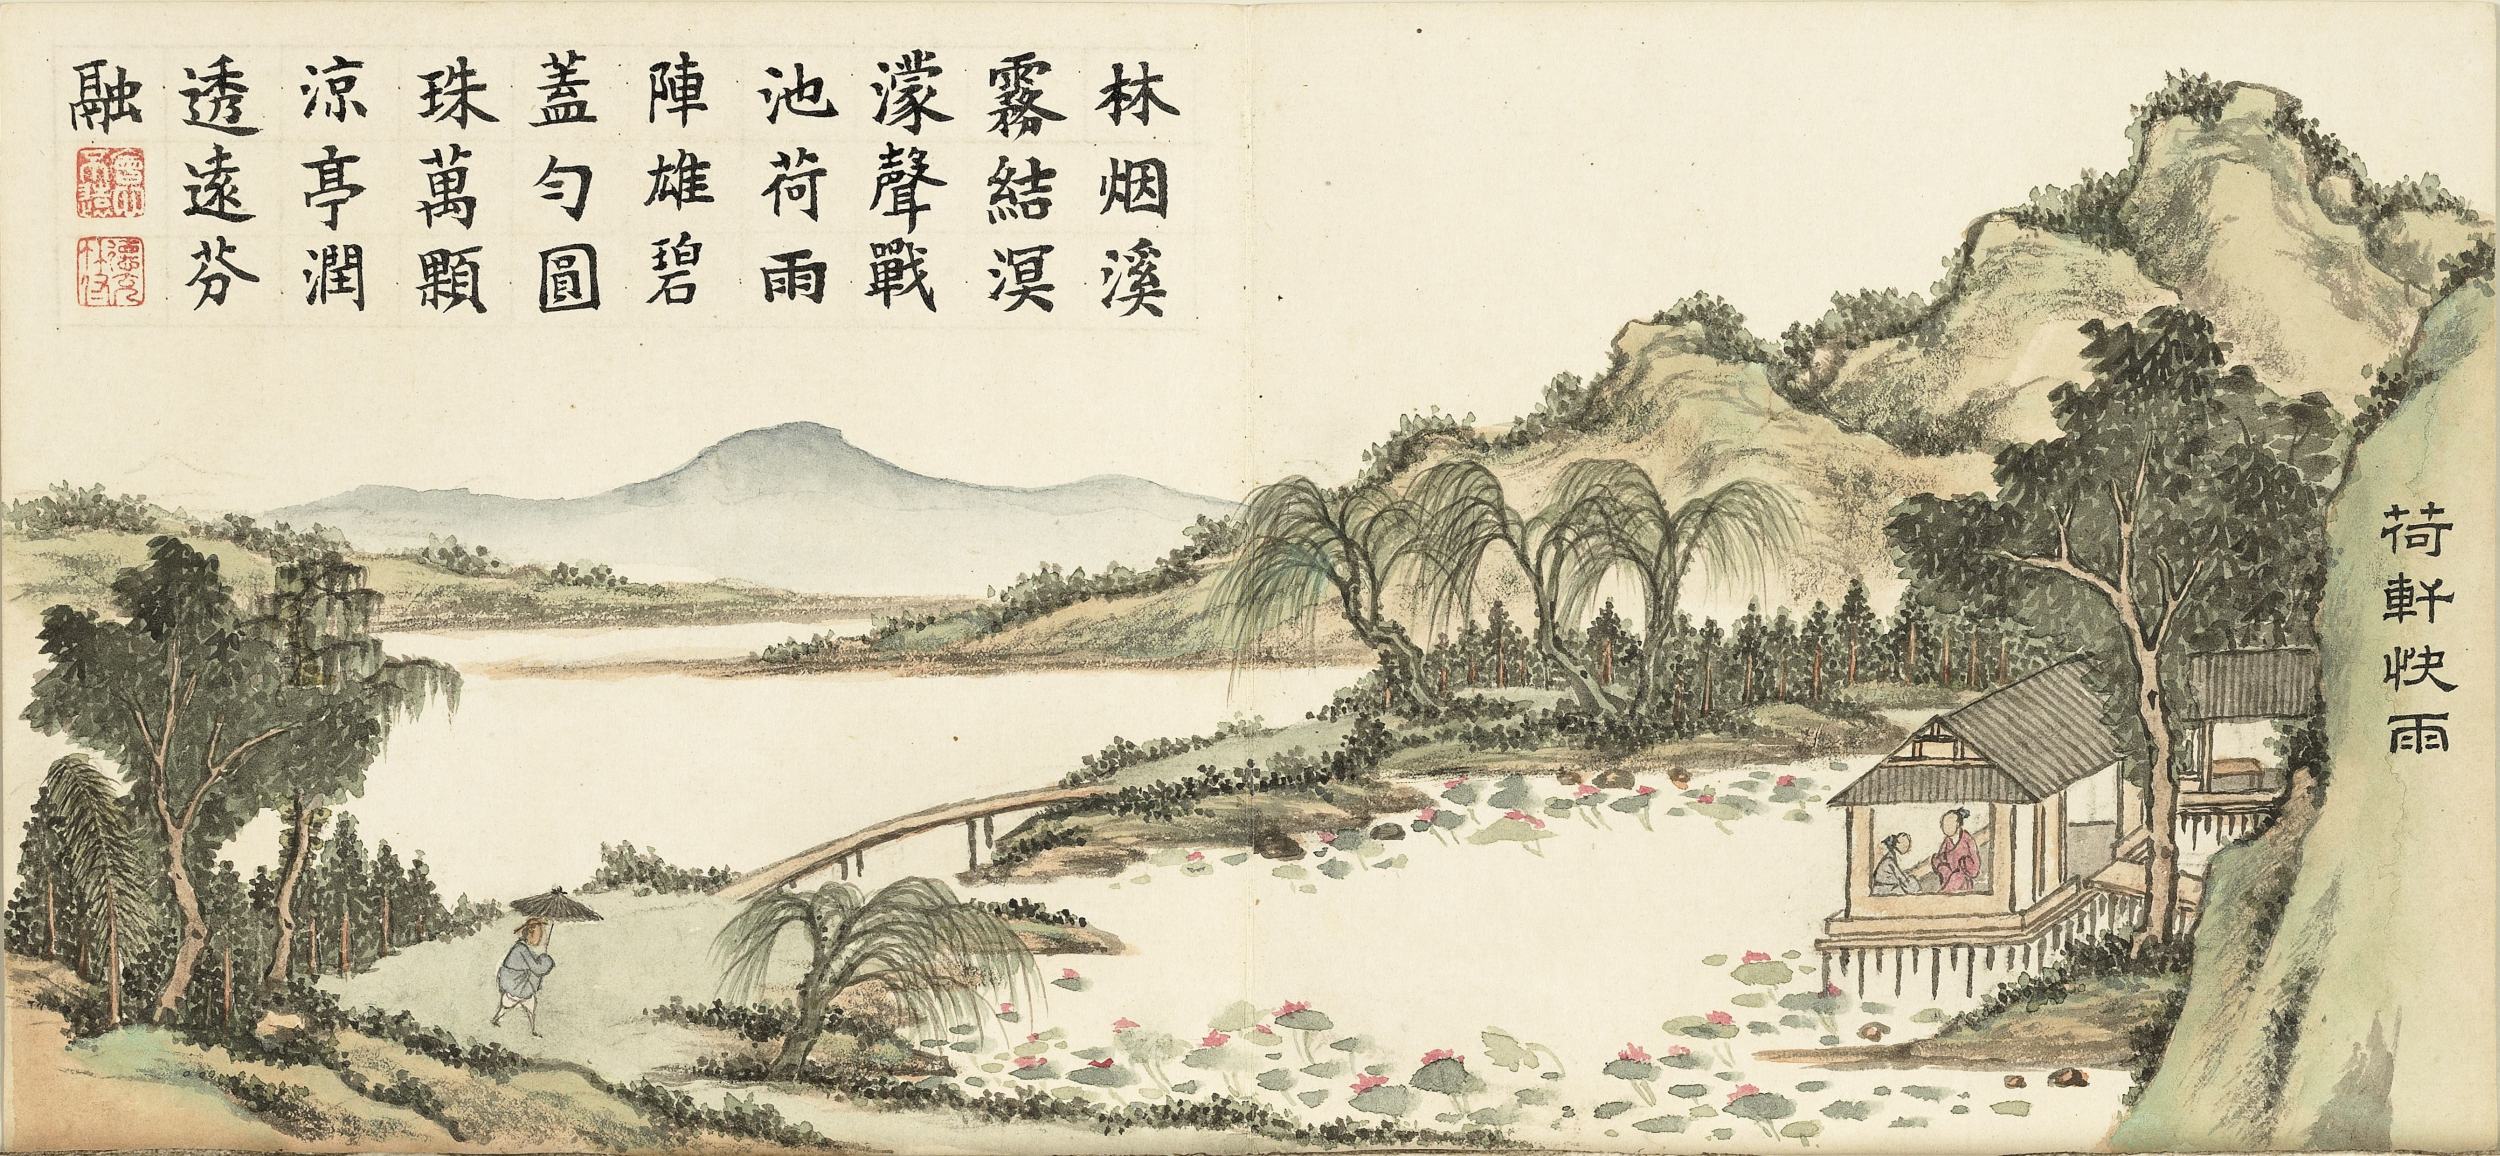 荷軒快雨
林烟溪
霧結溟
濛聲戰
池荷雨
陣雄碧
蓋勻圓
珠萬顆
涼亭潤
透遠芬
融